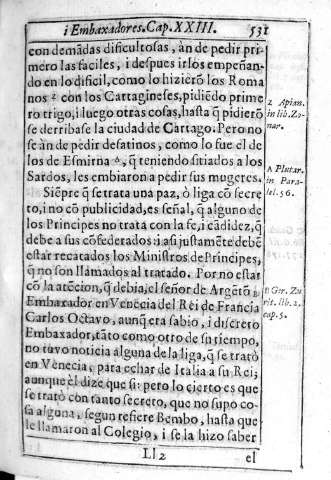 i Embaxadores. Cap. XXIII. 531
con demādas dificultosas, àn de pedir pri-
mero las faciles, i despues irlos empeñan-
do en lo dificil, como lo hizierō los Roma
nos 2 con los Cartagineses, pidiēdo prime
ro trigo, i luego otras cosas, hasta q̃ pidierō
se derribase la ciudad de Cartago. Pero no
se àn de pedir desatinos, como lo fue el de
los de Esmirna A, q̃ teniendo sitiados a los
Sardos, les embiaron a pedir sus mugeres.
Siēpre q̃ se trata una paz, ò liga cō secre
to, i no cō publicidad, es señal, q̃ alguno de
los Principes no trata con la fe, i cādidez, q̃
debe a sus cōfederados i asi justamēte debē
estar recatados los Ministros de Principes,
q̃ no son llamados al tratado. Por no estar
cō la atēcion, q̃ debia, el señor de Argētō B
Embaxador en Venecia del Rei de Francia
Carlos Octavo, aunq̃ era sabio, i discreto
Embaxador, tāto como otro de su tiempo,
no tuvo noticia alguna de la liga, q̃ se tratò
en Venecia, para echar de Italia a su Rei;
aunque èl dize que si: pero lo cierto es que
se tratò con tanto secreto, que no supo co-
sa alguna, segun refiere Bembo, hasta que
le llamaron al Colegio, i se la hizo saber
Ll 2 el
2 Apian.
in lib. Zo-
nar.
A Plutar.
in Para-
lel. 56.
B Ger. Zu
rit. lib. 2.
cap. 5.